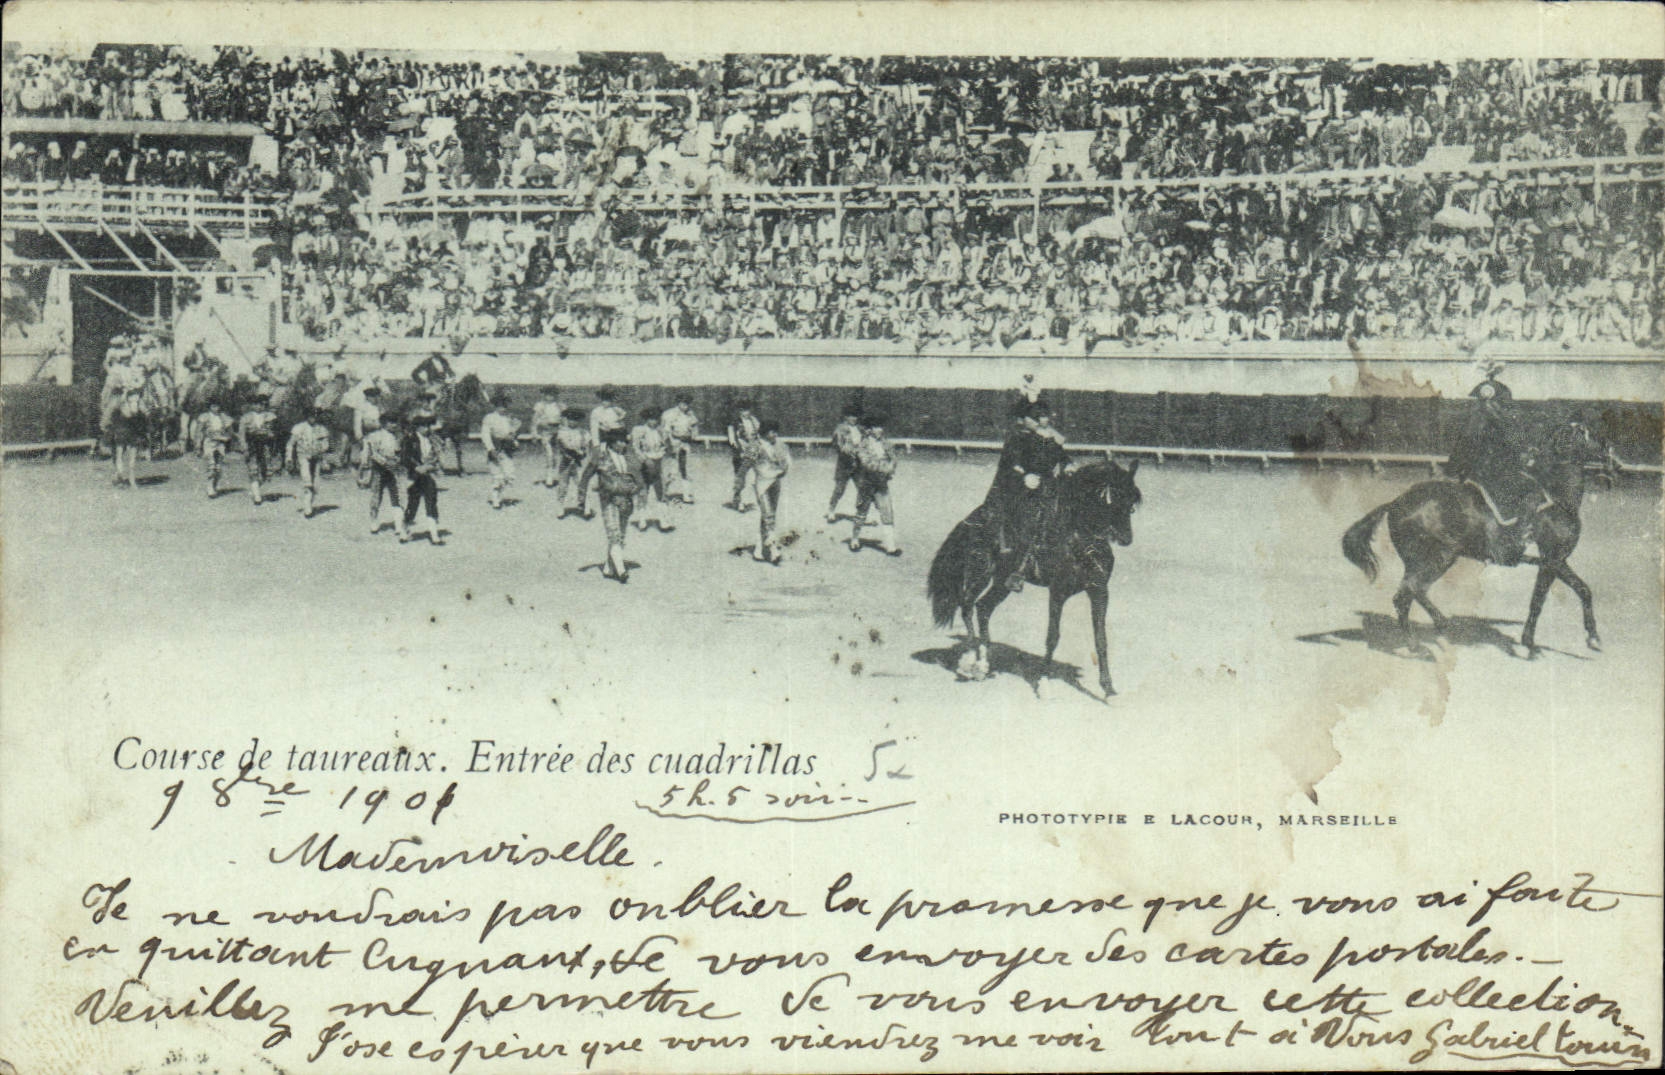 Course de taureaux. Entrée des cuadrillas
5
9 8bre 1901
5 h. 5 soir--
PHOTOTYPIE E LACOUR, MARSEILLE
Mademoiselle.
Je ne voudrais pas oublier la promesse que je vous ai faite
en quittant Cugnaux, de vous envoyer des cartes postales. -
Veuillez me permettre de vous envoyer cette collection.
J'ose espérer que vous viendrez me voir Tout à Vous Gabriel